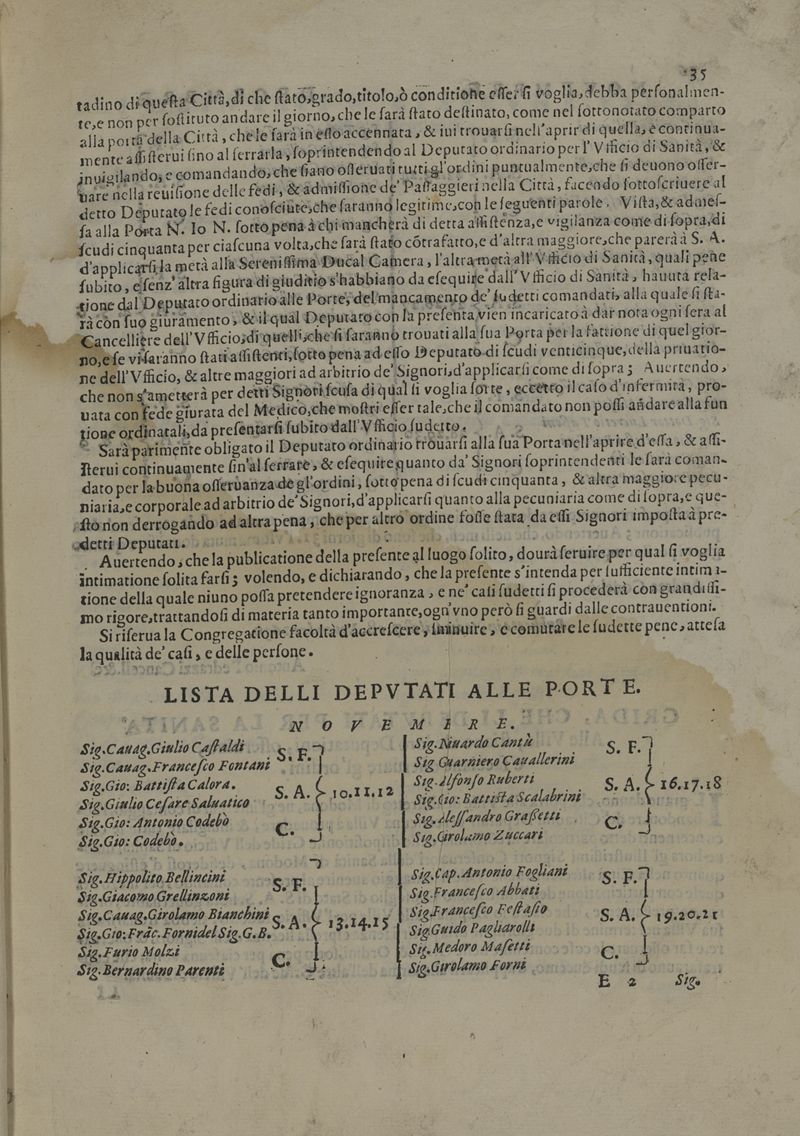 35
tadino di questa Città, di che stato, grado, titolo, ò conditione esser si voglia, debba personalmen-
te, e non per sostituto andare il giorno, che le sarà stato destinato, come nel sottonotato comparto
alla porta della Città, che le sarà in esso accennata, & iui trouarsi nell'aprir di quella, e continua-
mente assisterui sino al serrarla, soprintendendo al Deputato ordinario per l'Vfficio di Sanità, &
inuigilando, e comandando, che siano osseruati tutti gl'ordini puntualmente, che si deuono osser-
uare nella reuisione delle fedi, & admissione de' Passaggieri nella Città, facendo sottoscriuere al
detto Deputato le fedi conosciute, che saranno legitime, con le seguenti parole. Vista, & admes-
sa alla Porta N. Io N. sotto pena à chi mancherà di detta assistenza, e vigilanza come di sopra, di
scudi cinquanta per ciascuna volta, che sarà stato cōtrafatto, e d'altra maggiore, che parerà à S. A.
d'applicarsi la metà alla Serenissima Ducal Camera, l'altra metà all'Vfficio di Sanità, quali pene
subito, e senz' altra figura di giuditio s'habbiano da esequire dall'Vfficio di Sanità, hauuta rela-
tione dal Deputato ordinario alle Porte, del mancamento de' sudetti comandati, alla quale si sta-
rà con suo giuramento, & il qual Deputato con la presente vien incaricato à dar nota ogni sera al
Cancelliere dell'Vfficio, di quelli, che si saranno trouati alla sua Porta per la fattione di quel gior-
no, e se vi saranno stati assistenti, sotto pena ad esso Deputato di scudi venticinque, della priuatio-
ne dell'Vfficio, & altre maggiori ad arbitrio de' Signori, d'applicarsi come di sopra; Auertendo,
che non s'ametterà per detti Signori scusa di qual si voglia sorte, eccetto il caso d'infermità, pro-
uata con fede giurata del Medico, che mostri esser tale, che il comandato non possi andare alla fun
tione ordinatali, da presentarsi subito dall'Vfficio sudetto.
Sarà parimente obligato il Deputato ordinario trouarsi alla sua Porta nell'aprire d'essa, & assi-
sterui continuamente sin'al serrare, & esequire quanto da' Signori soprintendenti le sarà coman-
dato per la buona osseruanza de gl'ordini, sotto pena di scudi cinquanta, & altra maggiore pecu-
niaria, e corporale ad arbitrio de' Signori, d'applicarsi quanto alla pecuniaria come di sopra, e que-
sto non derrogando ad altra pena, che per altro ordine fosse stata da essi Signori imposta à pre-
detti Deputati.
Auertendo, che la publicatione della presente al luogo solito, dourà seruire per qual si voglia
intimatione solita farsi; volendo, e dichiarando, che la presente s'intenda per sufficiente intima-
tione della quale niuno possa pretendere ignoranza, e ne' casi sudetti si procederà con grandissi-
mo rigore, trattandosi di materia tanto importante, ogn'vno però si guardi dalle contrauentioni.
Si riserua la Congregatione facoltà d'accrescere, iminuire, e comutare le sudette pene, attesa
la qualità de' casi, e delle persone.
LISTA DELLI DEPVTATI ALLE PORTE.
NOVEMBRE.
Sig. Cauag. Giulio Castaldi
Sig. Cauag. Francesco Fontani
S. F.
Sig. Gio: Battista Calora.
Sig. Giulio Cesare Saluatico
S. A. 10.11.12
Sig. Gio: Antonio Codebò
Sig. Gio: Codebò.
C.
Sig. Hippolito Bellincini
Sig. Giacomo Grellinzoni
S. F.
Sig. Cauag. Girolamo Bianchini
Sig. Gio: Frāc. Forni del Sig. G.B.
S. A. 13.14.15
Sig. Furio Molzi
Sig. Bernardino Parenti
C.
Sig. Niuardo Cantù
Sig Guarniero Cauallerini
S. F.
Sig. Alfonso Ruberti
Sig. Gio: Battista Scalabrini
S. A. 16.17.18
Sig. Alessandro Grassetti
Sig. Girolamo Zuccari
C.
Sig. Cap. Antonio Fogliani
Sig. Francesco Abbati
S. F.
Sig. Francesco Festasio
Sig Guido Pagliaroli
S. A. 19.20.21
Sig. Medoro Masetti
Sig. Girolamo Forni
C.
E 2 Sig.